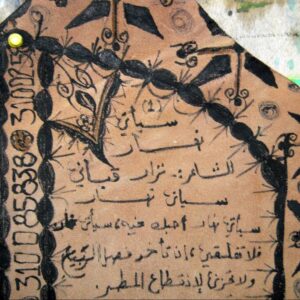 (2)
سيأتي
نهار
الشاعر: نزار قباني
سيأتي نهار
سيأتي نهار أحبك فيه، سيأتي نهار
فلا تقلقي، إن تأخر فصل الربيع
ولا تحزني لإنقطاع المطر.
310025
310085838